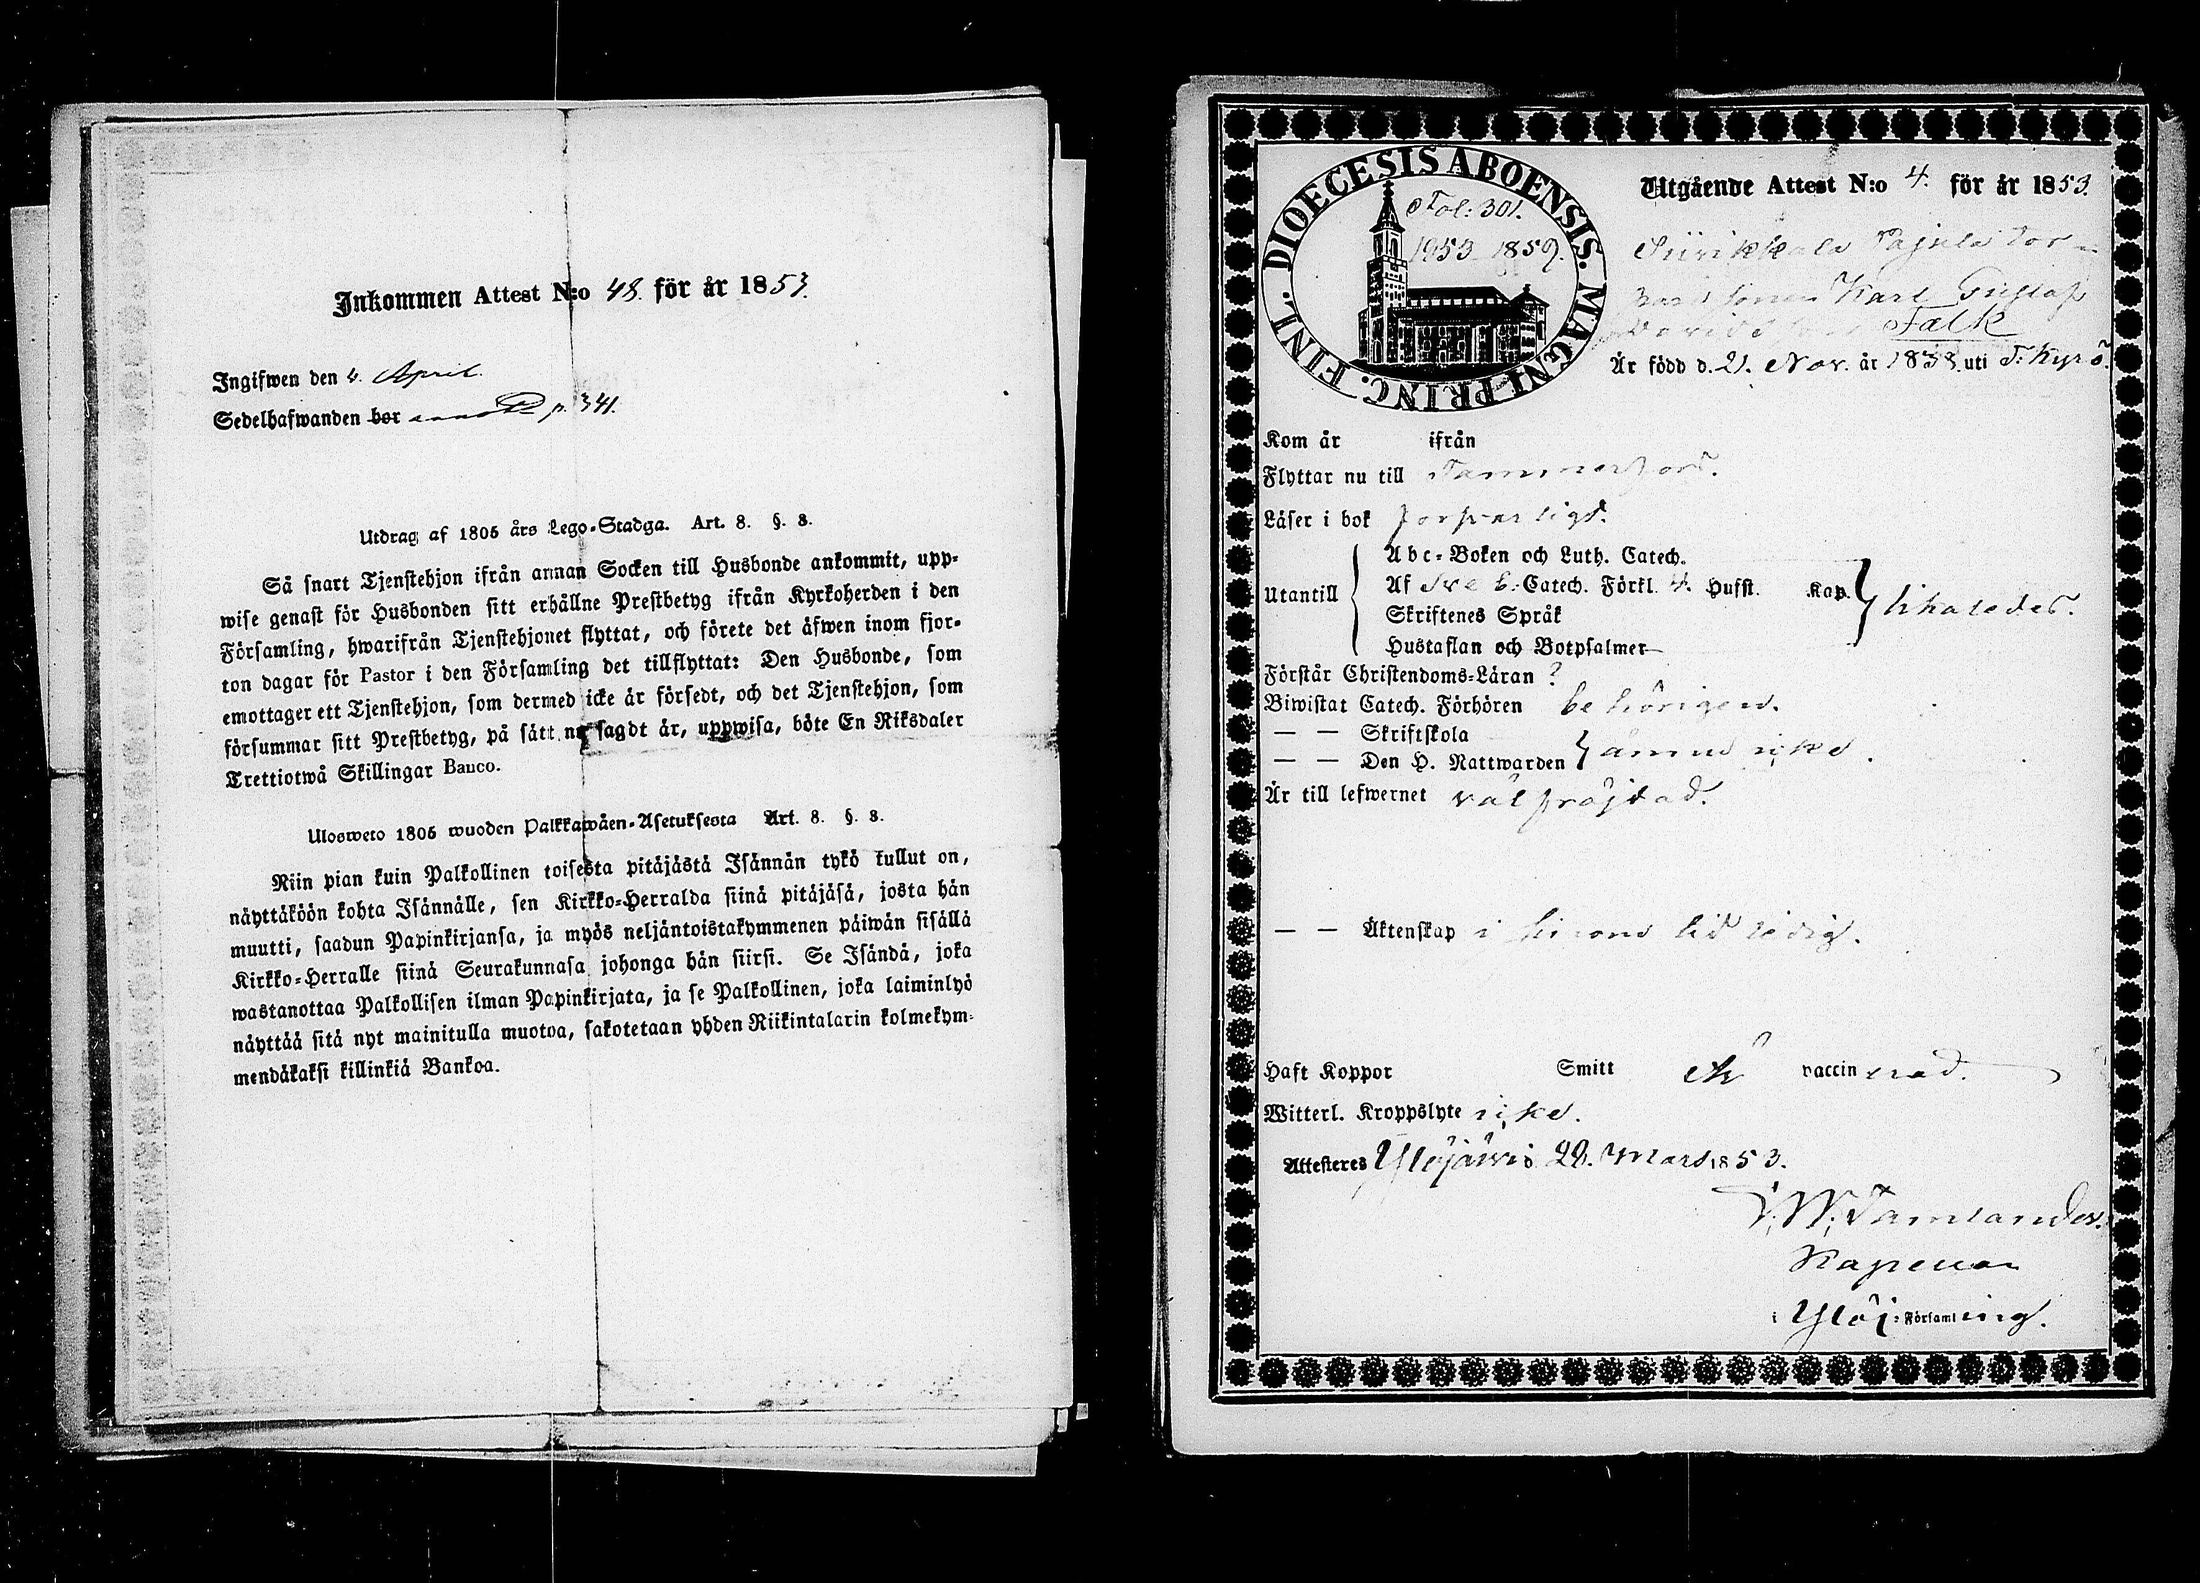 Inkommen Attest N:o 48. för år 1853.
Ingifwen den 4. April.
Sedelhafwanden bor p. 341.
Utdrag af 1805 års Lego-Stadga. Art. 8. §. 8.
Så snart Tjenstehjon ifrån annan Socken till Husbonde ankommit, upp-
wise genast för Husbonden sitt erhållne Prestbetyg ifrån Kyrkoherden i den
Församling, hwarifrån Tjenstehjonet flyttat, och förete det äfwen inom fjor-
ton dagar för Pastor i den Församling det tillflyttat: Den Husbonde, som
emottager ett Tjenstehjon, som dermed icke är försedt, och det Tjenstehjon, som
försummar sitt Prestbetyg, på sätt nu sagdt är, uppwisa, böte En Riksdaler
Trettiotwå Skillingar Banco.
Ulosweto 1805 wuoden Palkkawäen-Asetuksesta Art. 8. §. 8.
Niin pian kuin Palkollinen toisesta pitäjästä Isännän tykö tullut on,
näyttäköön kohta Isännälle, sen Kirkko-Herralda siinä pitäjäsä, josta hän
muutti, saadun Papinkirjansa, ja myös neljäntoistakymmenen päiwän sisällä
Kirkko-Herralle siinä Seurakunnasa johonga hän siirsi. Se Isändä, joka
wastanottaa Palkollisen ilman Papinkirjata, ja se Palkollinen, joka laiminlyö
näyttää sitä nyt mainitulla muotoa, sakotetaan yhden Riikintalarin kolmekym-
mendäkaksi killinkiä Bankoa.
DIOECESIS ABOENSIS. MAGNI PRINC. FINL.
Fol: 301.
1853 1859.
Utgående Attest N:o 4. för år 1853.
Siirikkala Pajula tor-
pare sonen Karl Gustaf
Davidsson Falk
Är född d. 21. Nov. år 1838. uti T. Kyrö.
Kom år ifrån
Flyttar nu till Tammerfors.
Läser i bok försvarligt.
Utantill
Abc-Boken och Luth. Catech.
Af Sveb: Catech. Förkl. 4. Hufst. Kap.
Skriftenes Språk
Hustaflan och Botpsalmer
likaledes.
Förstår Christendoms-Läran ?
Biwistat Catech. Förhören behörigen.
— — Skriftskola
— — Den H. Nattwarden ännu icke.
Är till lefwernet väl fräjdad.
— — Äktenskap i hinders tid ledig.
Haft Koppor Smitt Är vaccinerad.
Witterl. Kroppslyte icke.
Attesteres Ylöjärvi 22. Mars 1853.
Kapellan
i Ylöj: Församling.